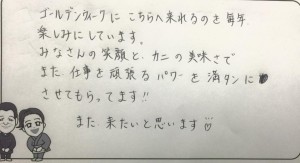 ゴールデンウィークに こちらへ来れるのを毎年
楽しみにしています。
みなさんの笑顔と、カニの美味さで
また、仕事を頑張るパワーを満タンに
させてもらってます!!
また 来たいと思います